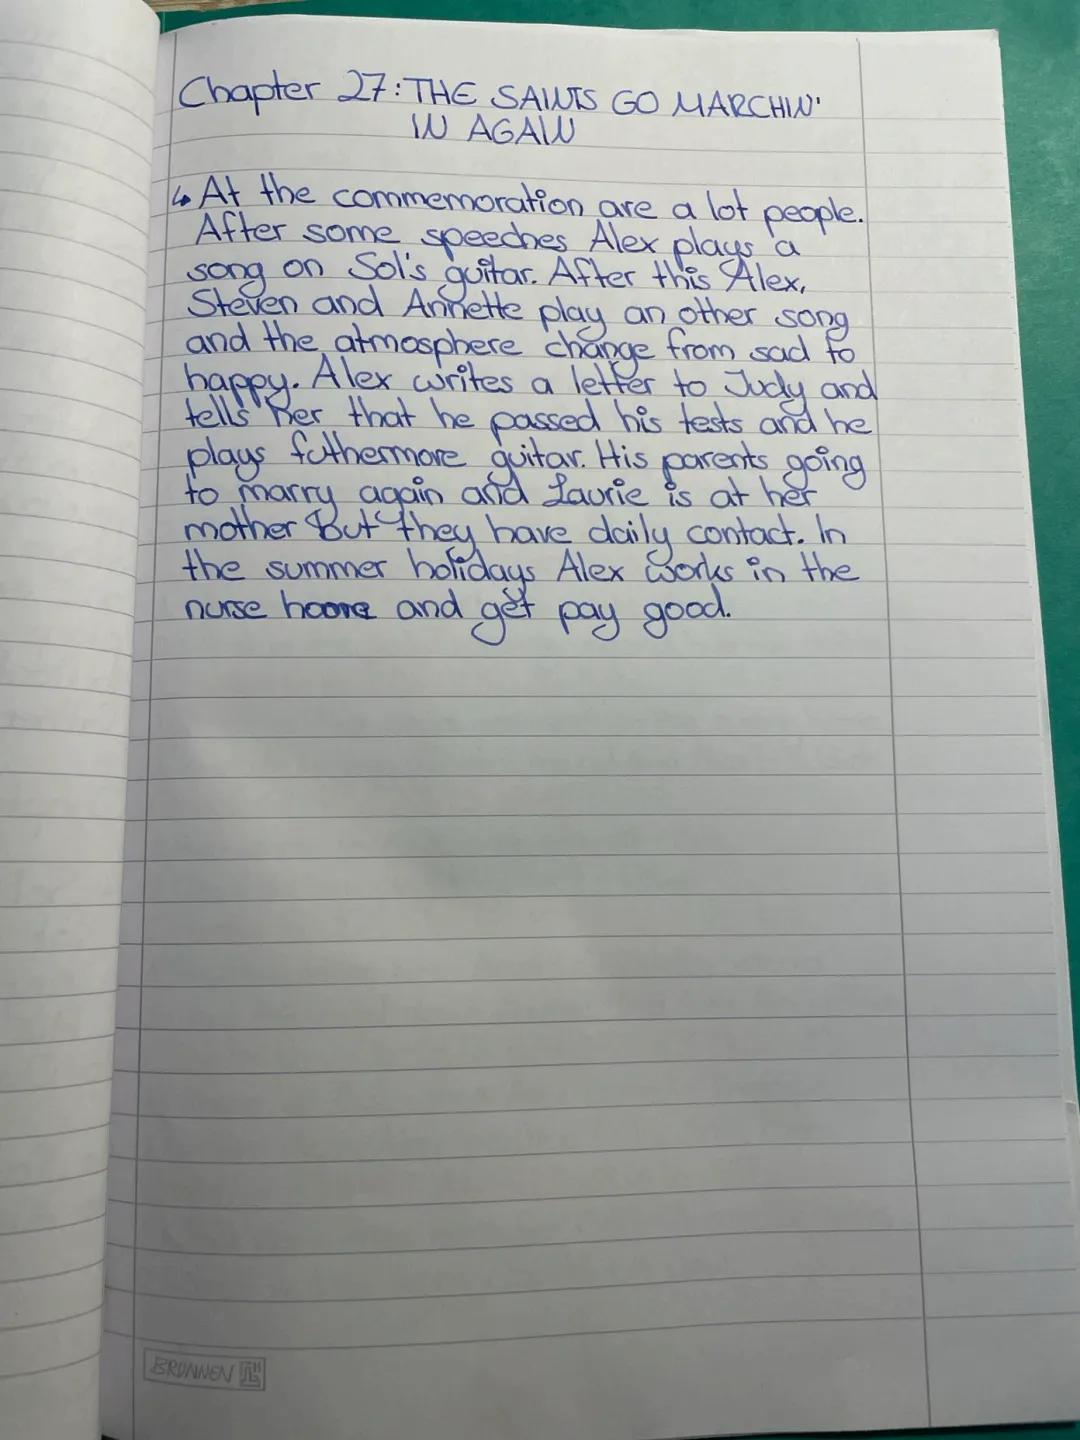 Chapter 27: THE SAINTS GO MARCHIN'
IN AGAIN
↳ At the commemoration are a lot people.
After some speeches Alex plays a
song on Sol's guitar. After this Alex,
Steven and Annette play an other song
and the atmosphere change from sad to
happy. Alex writes a letter to Judy and
tells her that he passed his tests and he
plays futhermore guitar. His parents going
to marry again and Laurie is at her
mother But they have daily contact. In
the summer holidays Alex works in the
nurse home and get pay good.
BRUNNEN